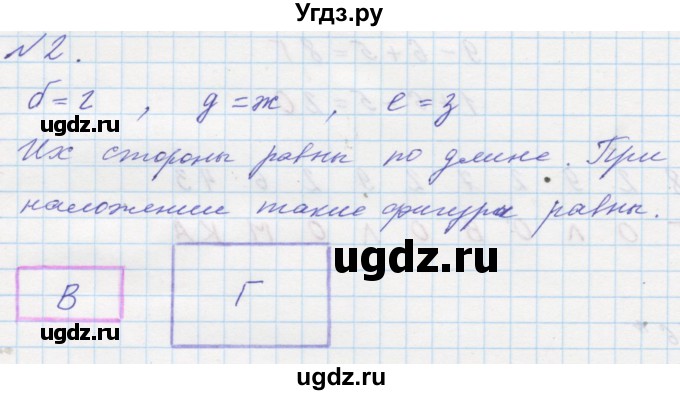 Угдз.ру
№2.
б=г , д=ж, е=з
Их стороны равны по длине. При
наложении такие фигуры равны.
В Г
ugdz.ru
ugdz.ru
ugdz.ru
ugdz.ru
ugdz.ru
ugdz.ru